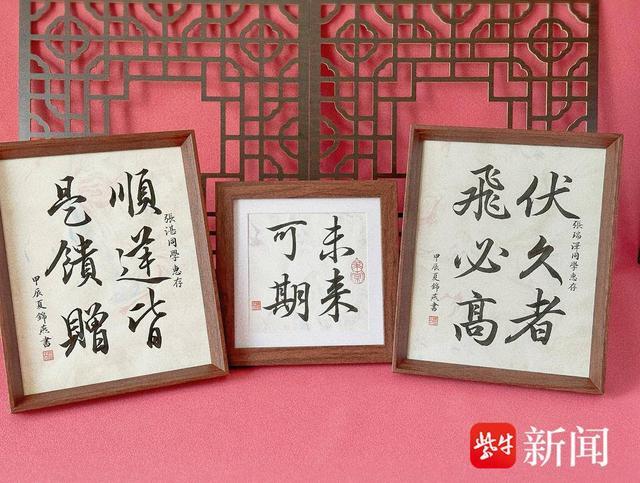 張湛同學惠存
順逆皆
是饋贈
甲辰夏錦燕書
未来
可期
張瑞澤同學惠存
伏久者
飛必高
甲辰夏錦燕書
紫牛新闻